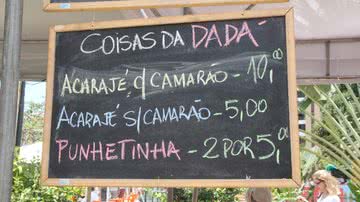 COISAS DA DADÁ
ACARAJÉ C/ CAMARÃO - 10,00
ACARAJÉ S/CAMARÃO - 5,00
PUNHETINHA - 2 POR 5,00